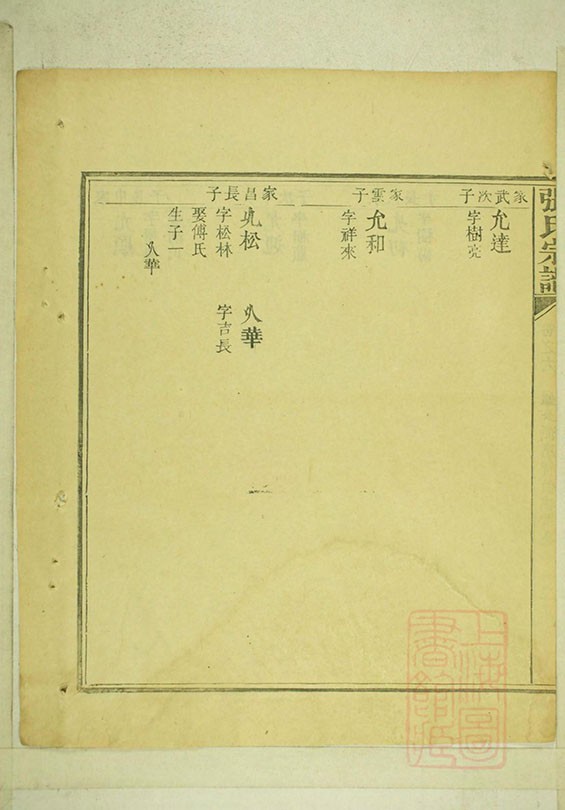 張氏宗譜
家武次子
允達
字樹亮
家雲子
允和
字祥來
家昌長子
允松
字松林
娶傅氏
生子一
久華
久華
字吉長
上海圖書館藏